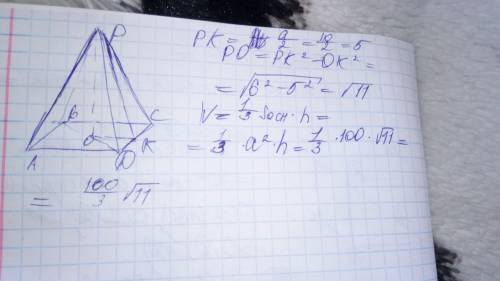 P
B
C
O
K
A
D
PK = a/2 = 10/2 = 5
PO = PK² - OK² =
= √(6² - 5²) = √11
V = 1/3 Sосн · h =
= 1/3 · a² · h = 1/3 · 100 · √11 =
= 100/3 √11